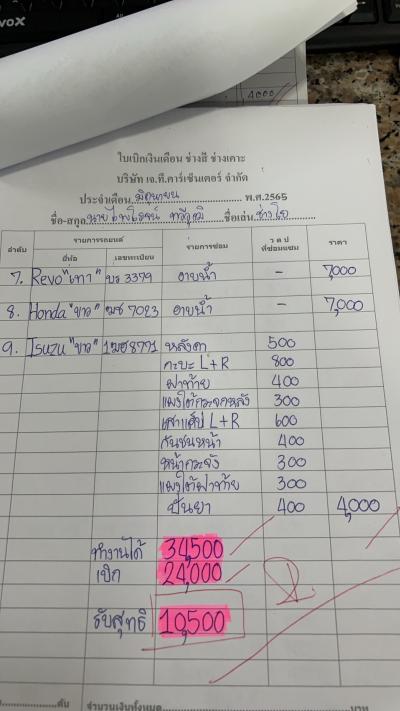 vox
4000
ใบเบิกเงินเดือน ช่างสี ช่างเคาะ
บริษัท เจ.ที.คาร์เซ็นเตอร์ จำกัด
ประจำเดือน มิถุนายน พ.ศ.2565
ชื่อ-สกุล นายไพโรจน์ ชื่อเล่น ช่างโอ
ลำดับ รายการรถยนต์ รายการซ่อม ว ด ป ที่ซ่อมแซม ราคา
ยี่ห้อ เลขทะเบียน
7. Revo "เทา" บร 3379 อาบน้ำ - 7,000
8. Honda "ขาว" ฌช 7023 อาบน้ำ - 7,000
9. Isuzu "ขาว" 1ฒฮ8771 หลังคา 500
กะบะ L+R 800
ฝาท้าย 400
แผงใต้กระจกหลัง 300
เสาแค๊ป L+R 600
กันชนหน้า 400
หน้ากระจัง 300
แผงใต้ฝาท้าย 300
ปั่นยา 400 4,000
ทำงานได้ 34,500
เบิก 24,000
รับสุทธิ 10,500
คัน จำนวนเงินทั้งหมด บาท